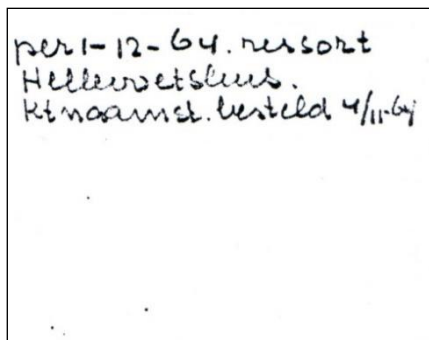 per 1-12-64. ressort
Hellevoetsluis.
Kt naamst. besteld 4/11-64